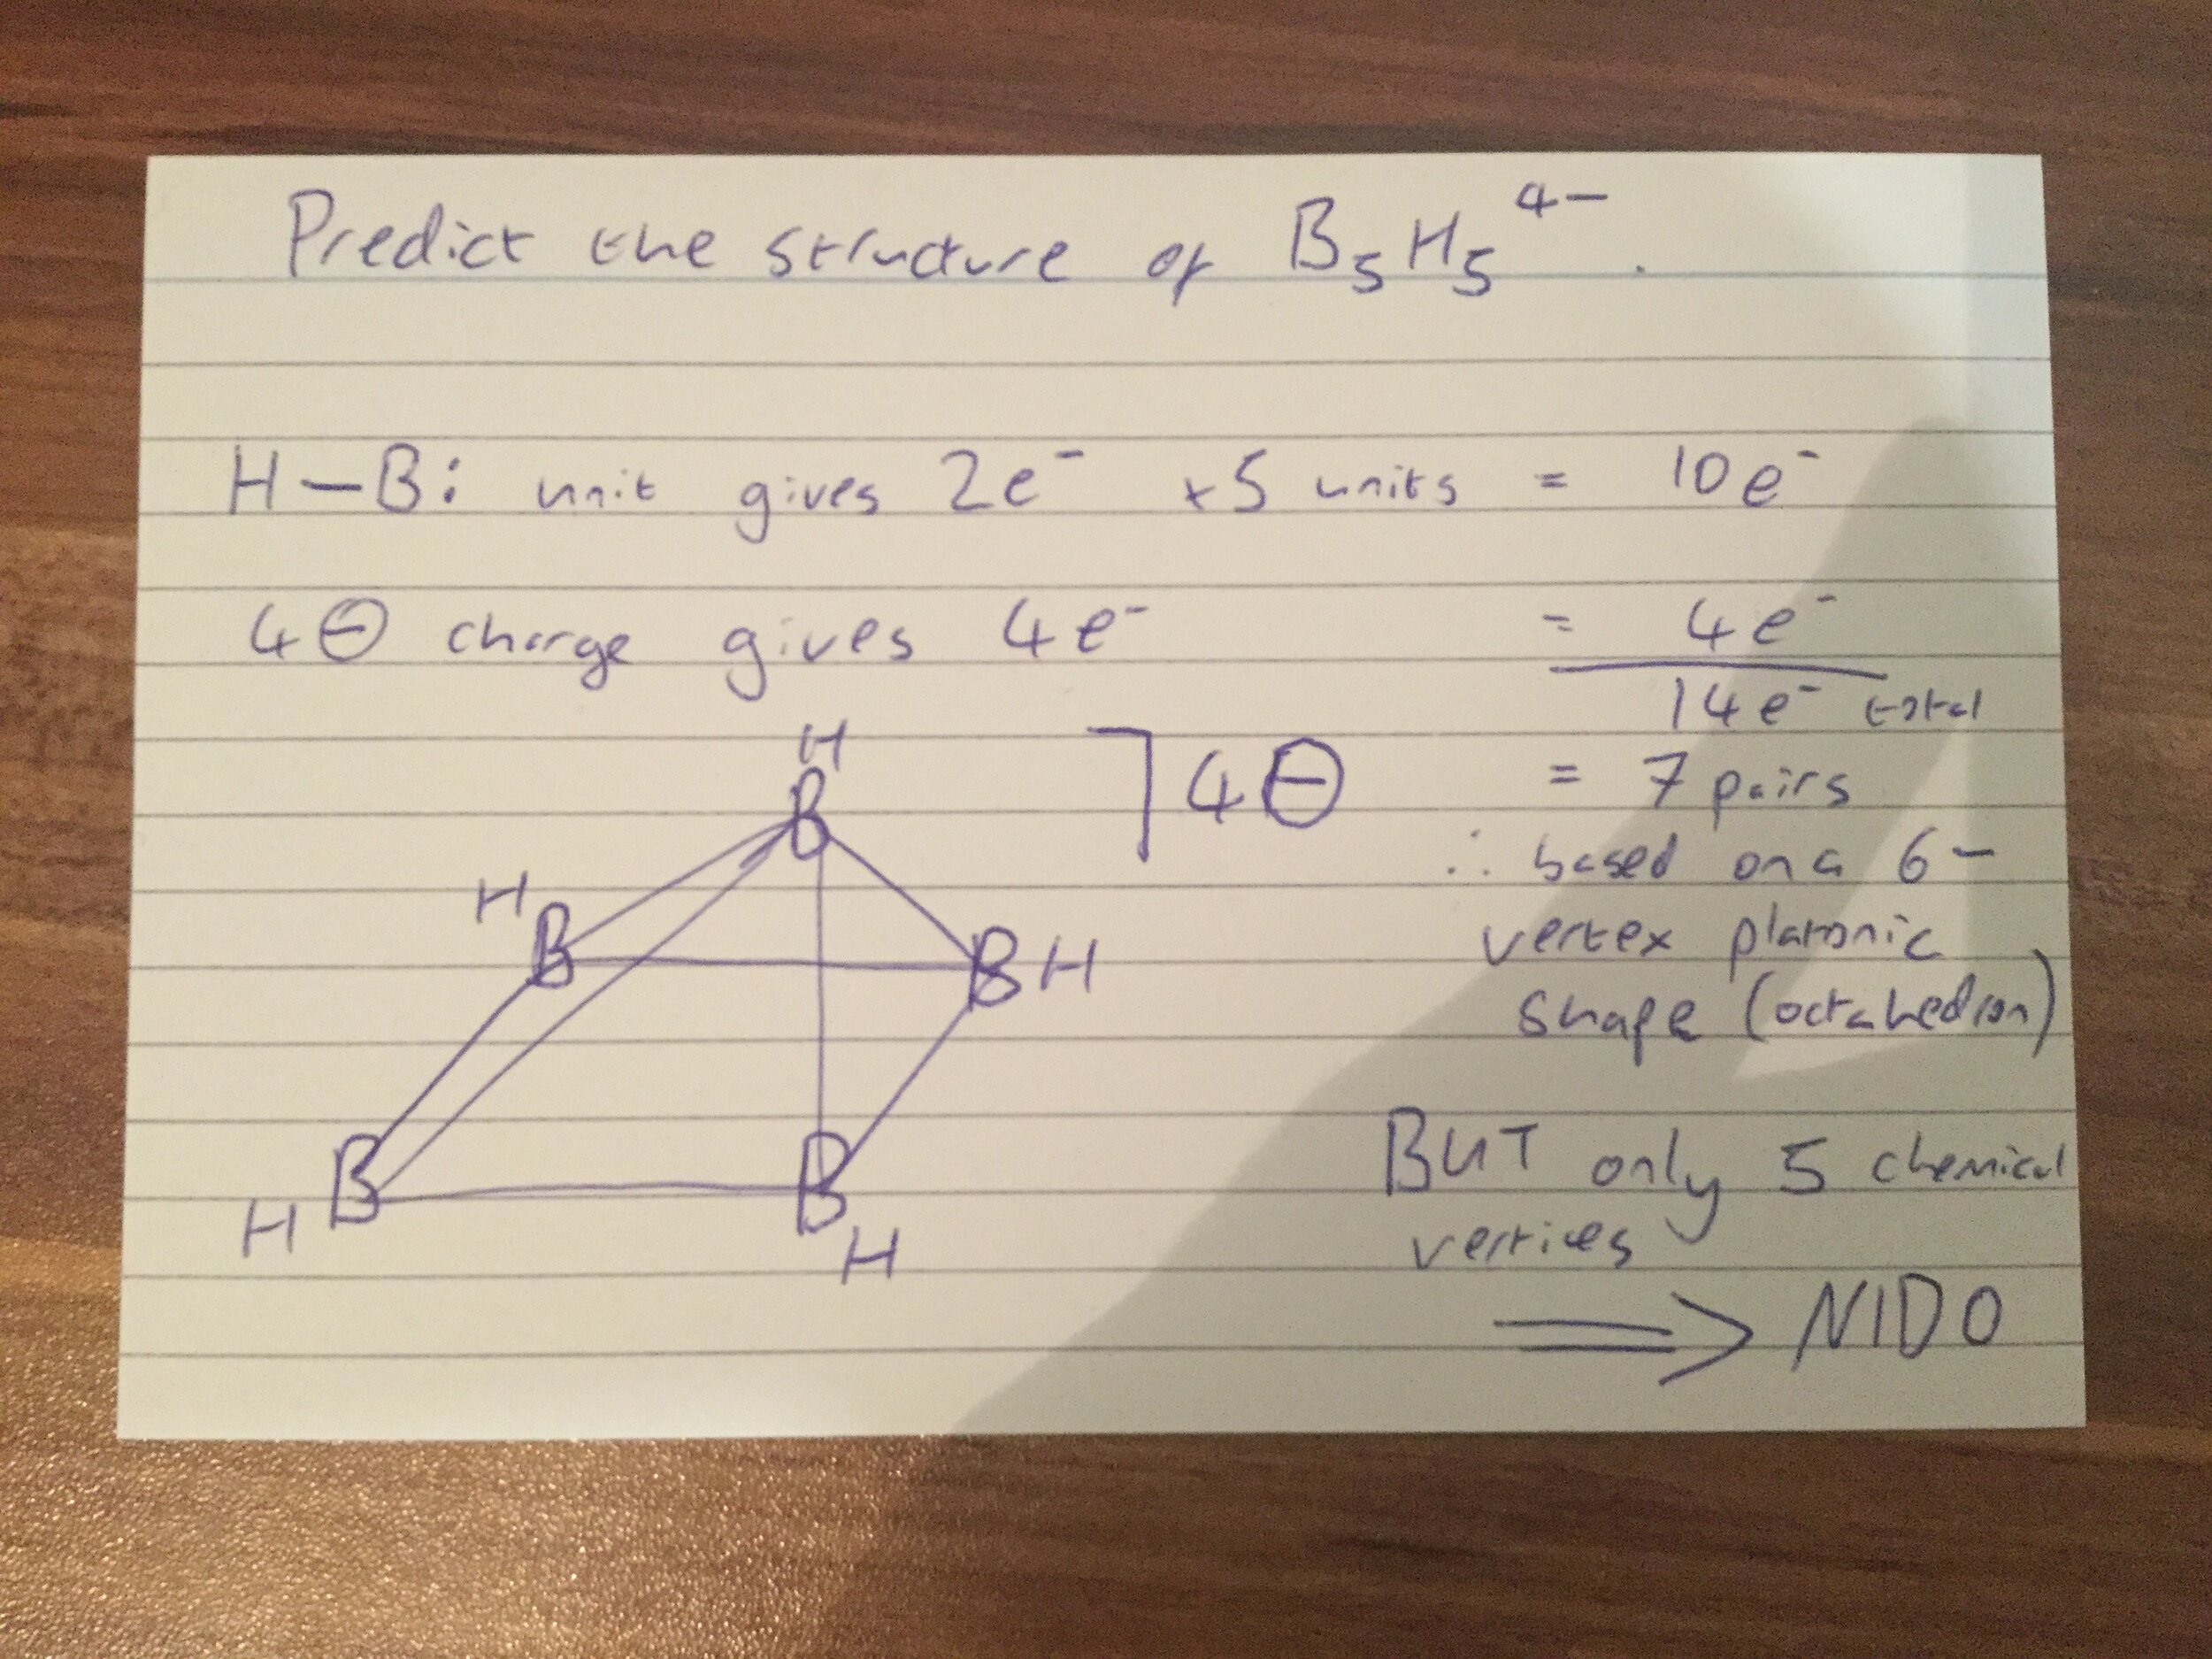 Predict the structure of B₅H₅⁴⁻.
H—B: unit gives 2e⁻ ×5 units = 10e⁻
4⊖ charge gives 4e⁻ = 4e⁻
14e⁻ total
= 7 pairs
∴ based on a 6-
vertex platonic
shape (octahedron)
BUT only 5 chemical
vertices
⟹ NIDO
H
B
]4⊖
H
B
B H
B
H
B
H